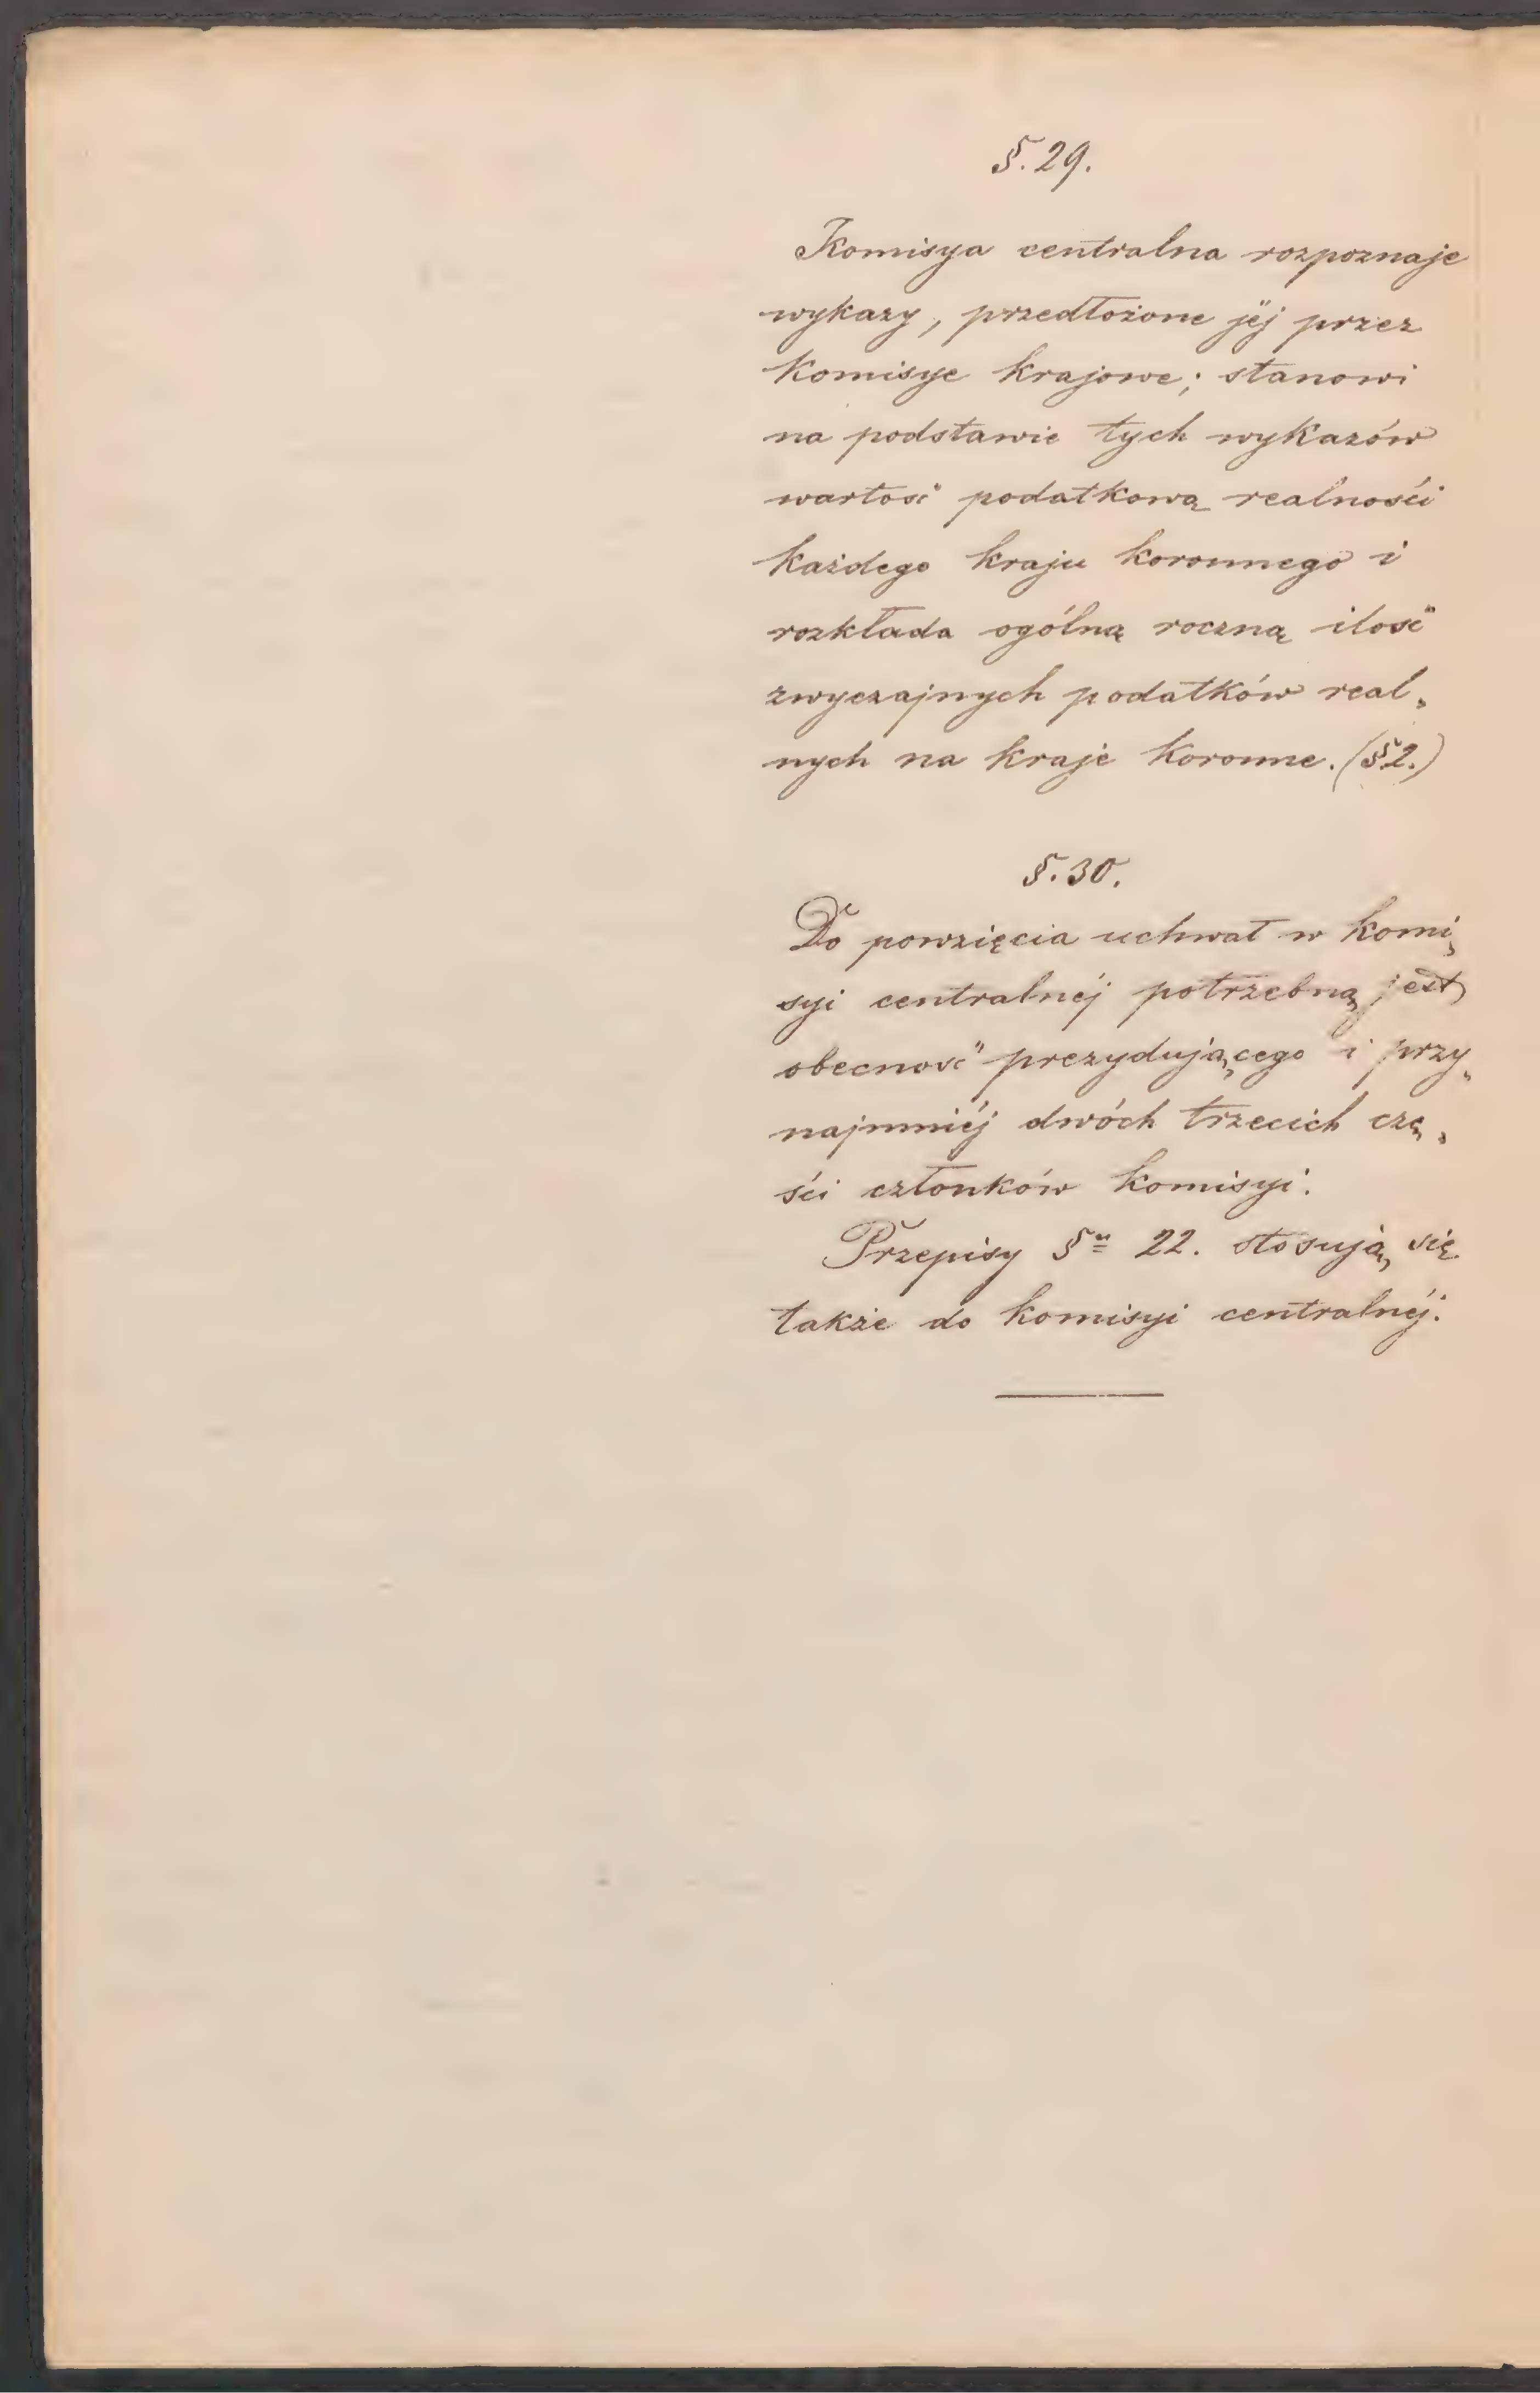 §. 29.
Komisya centralna rozpoznaje
wykazy, przedłożone jéj przez
Komisye krajowe; stanowi
na podstawie tych wykazów
wartość podatkową realności
każdego kraju koronnego i
rozkłada ogólną roczną ilość
zwyczajnych podatków real„
nych na kraje koronne. (§2.)
§. 30.
Do powzięcia uchwał w komi„
syi centralnéj potrzebną jest
obecność prezydującego i przy„
najmniéj dwóch trzecich czę„
ści członków komisyi.
Przepisy §u 22. stosują się
także do komisyi centralnéj.